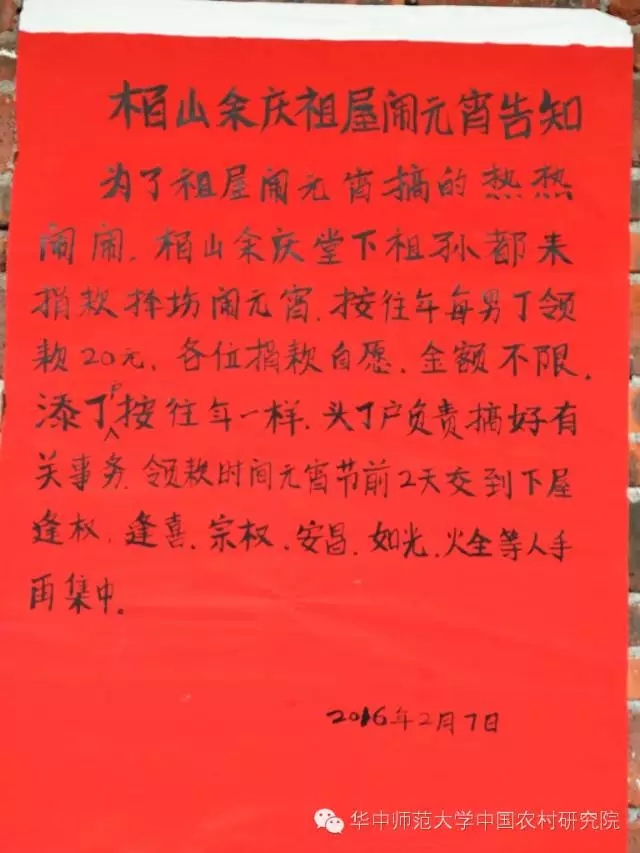 栢山余庆祖屋闹元宵告知
为了祖屋闹元宵搞的热热
闹闹.栢山余庆堂下祖孙都来
捐款捧场闹元宵.按往年每男丁领
款20元.各位捐款自愿.金额不限.
添丁户按往年一样.头丁户负责搞好有
关事务.领款时间元宵节前2天交到下屋
逢权.逢喜.宗权.安昌.如光.火全等人手
再集中。
2016年2月7日
华中师范大学中国农村研究院